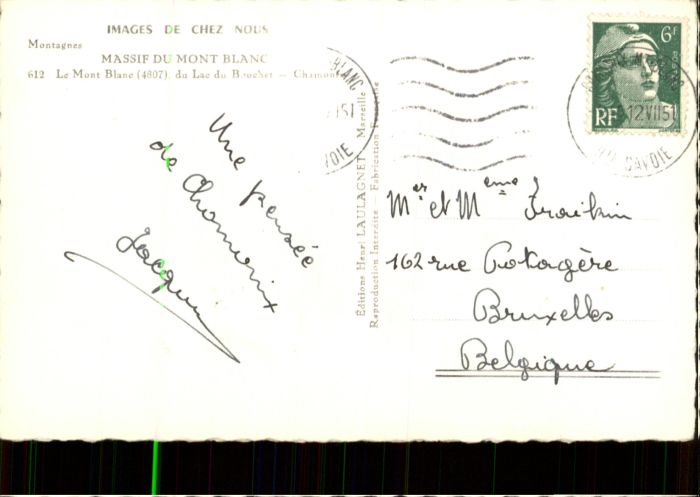 IMAGES DE CHEZ NOUS
Montagnes
MASSIF DU MONT BLANC
612 Le Mont Blanc (4807), du Lac du Brochet — Chamoni
Une pensée
de Chamonix
Jacques
Éditions Henri LAULAGNET — Marseille
Reproduction Interdite — Fabrication Française
BLANC
VII51
VOIE
6F
RF
12VII51
SAVOIE
Mer et Meme Fraikin
162 rue Potagère
Bruxelles
Belgique